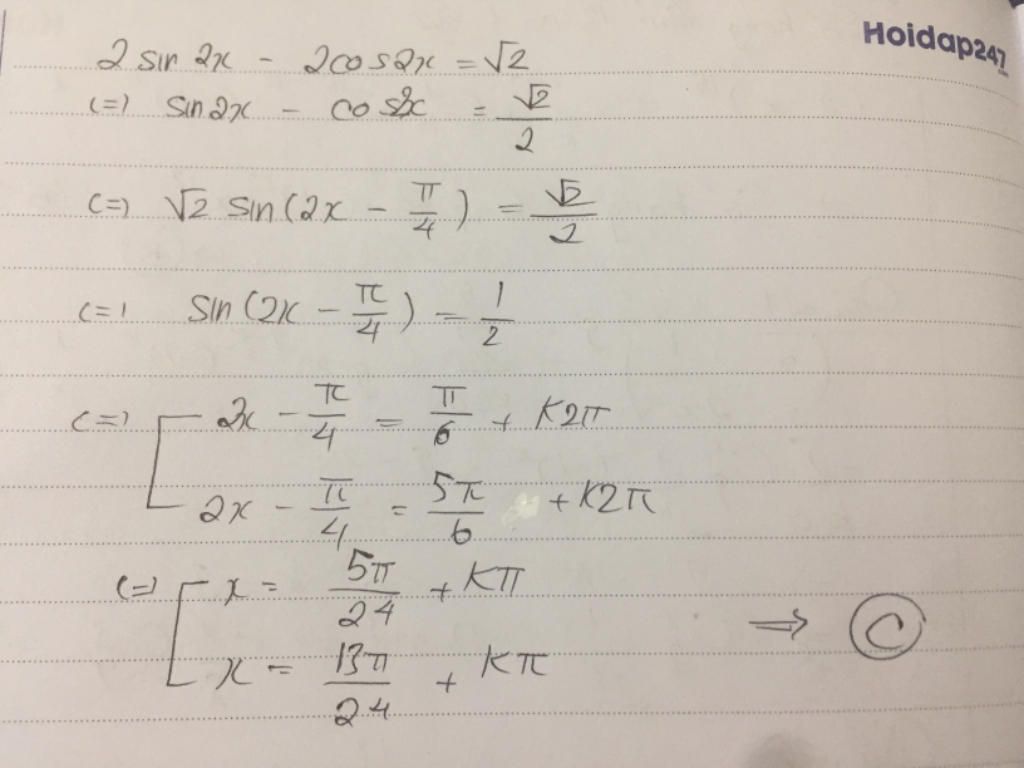 Hoidap247.com
2 sin 2x - 2cos2x = √2
(=) sin2x - cos2x = √2/2
(=) √2 sin(2x - π/4) = √2/2
(=) sin(2x - π/4) = 1/2
(=) [ 2x - π/4 = π/6 + K2π
2x - π/4 = 5π/6 + K2π
(=) [ x = 5π/24 + Kπ
x = 13π/24 + Kπ
⇒ C